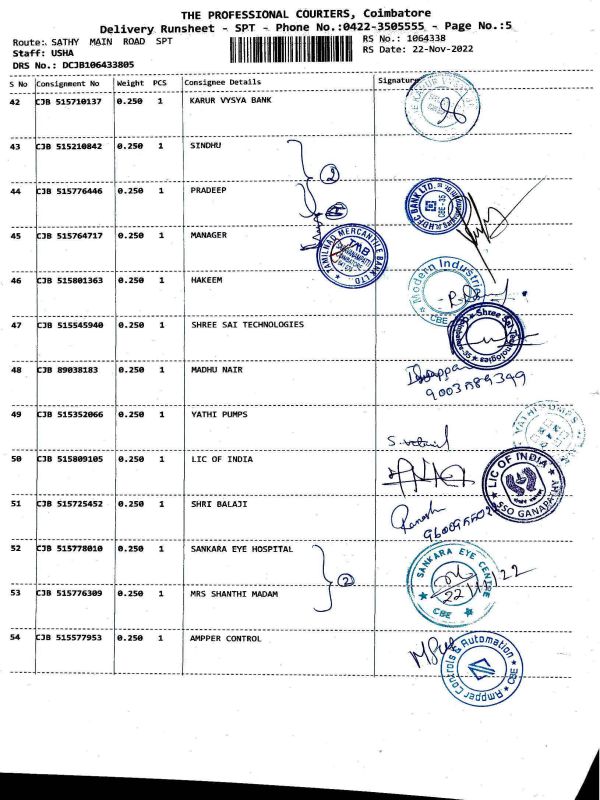 THE PROFESSIONAL COURIERS, Coimbatore
Delivery Runsheet - SPT - Phone No.:0422-3505555 - Page No.:5
Route: SATHY MAIN ROAD SPT RS No.: 1064338
Staff: USHA RS Date: 22-Nov-2022
DRS No.: DCJB106433805
S No Consignment No Weight PCS Consignee Details Signature
42 CJB 515710137 0.250 1 KARUR VYSYA BANK
43 CJB 515210842 0.250 1 SINDHU
2
44 CJB 515776446 0.250 1 PRADEEP
HDFC BANK LTD. CBE-35
45 CJB 515764717 0.250 1 MANAGER
TAMILNAD MERCANTILE BANK LTD. TMB
46 CJB 515801363 0.250 1 HAKEEM
Modern Industries CBE
47 CJB 515545940 0.250 1 SHREE SAI TECHNOLOGIES
Shree Sai Technologies
48 CJB 89038183 0.250 1 MADHU NAIR
49 CJB 515352066 0.250 1 YATHI PUMPS
YATHI PUMPS
50 CJB 515809105 0.250 1 LIC OF INDIA
LIC OF INDIA SSO GANAPATHY
51 CJB 515725452 0.250 1 SHRI BALAJI
Ramesh
52 CJB 515778010 0.250 1 SANKARA EYE HOSPITAL
2
SANKARA EYE CENTRE CBE
22/11/22
53 CJB 515776309 0.250 1 MRS SHANTHI MADAM
54 CJB 515577953 0.250 1 AMPPER CONTROL
Ampper Controls & Automation CBE